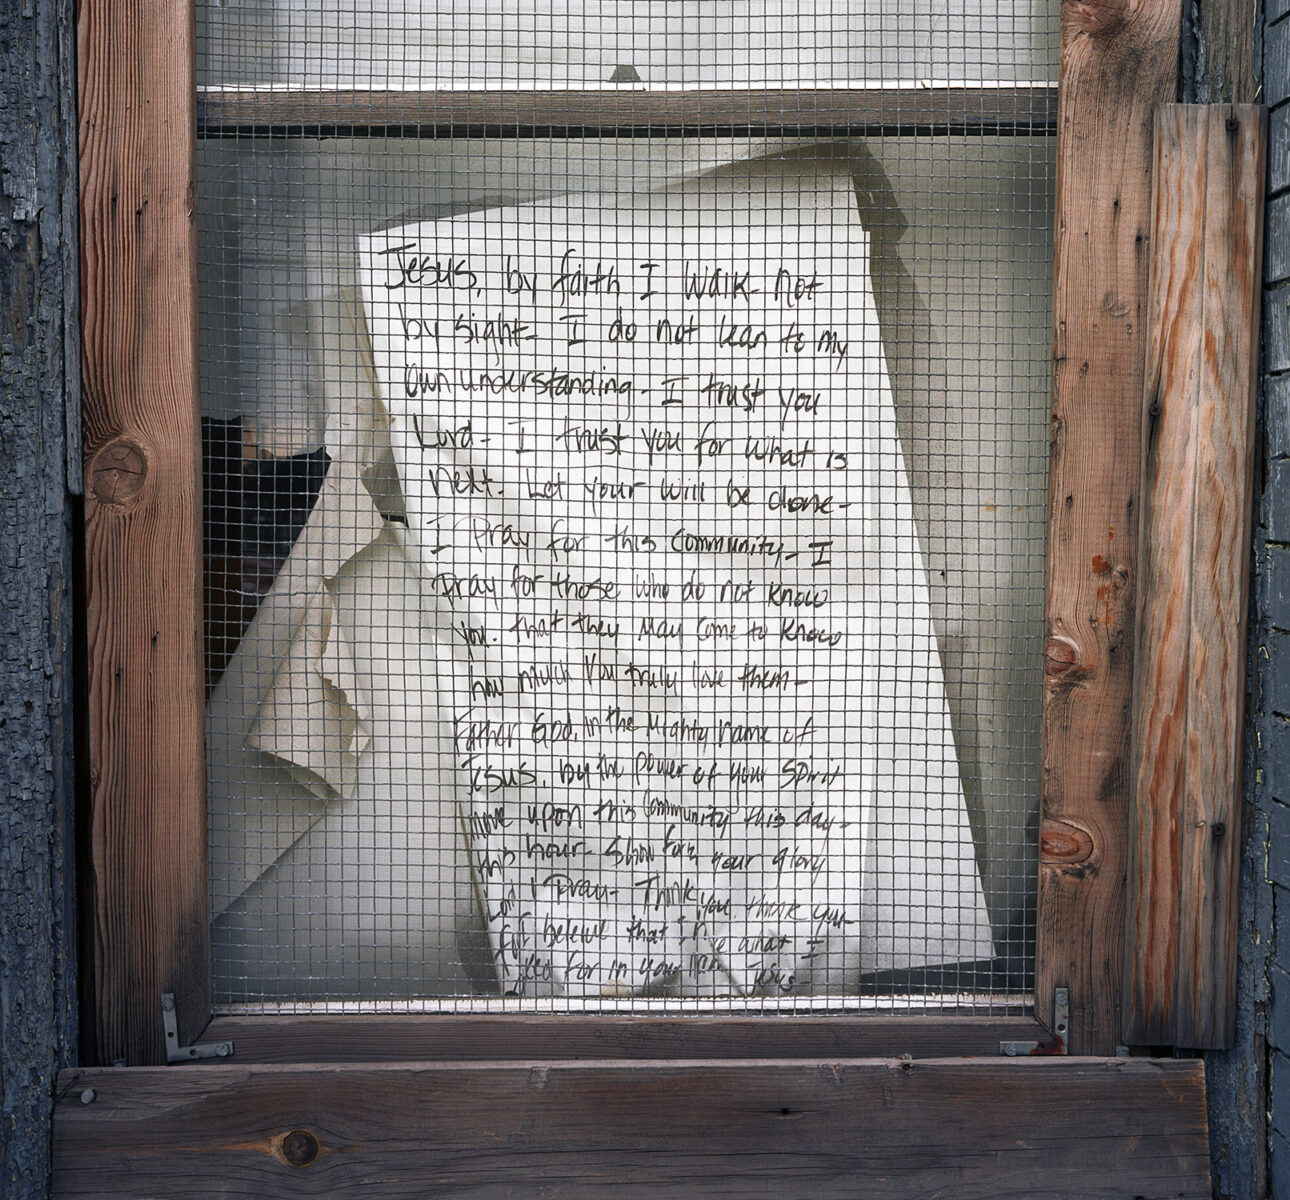 Jesus, by faith I walk not
by sight- I do not lean to my
own understanding- I trust you
Lord- I trust you for what is
next. Let your will be done-
I pray for this community- I
pray for those who do not know
you. that they may come to know
how much you truly love them-
Father God, in the Mighty name of
Jesus, by the power of your Spirit
move upon this community this day-
this hour- Show forth your glory
Lord I pray- Thank you, thank you
I believe that what I
for in your name Jesus-